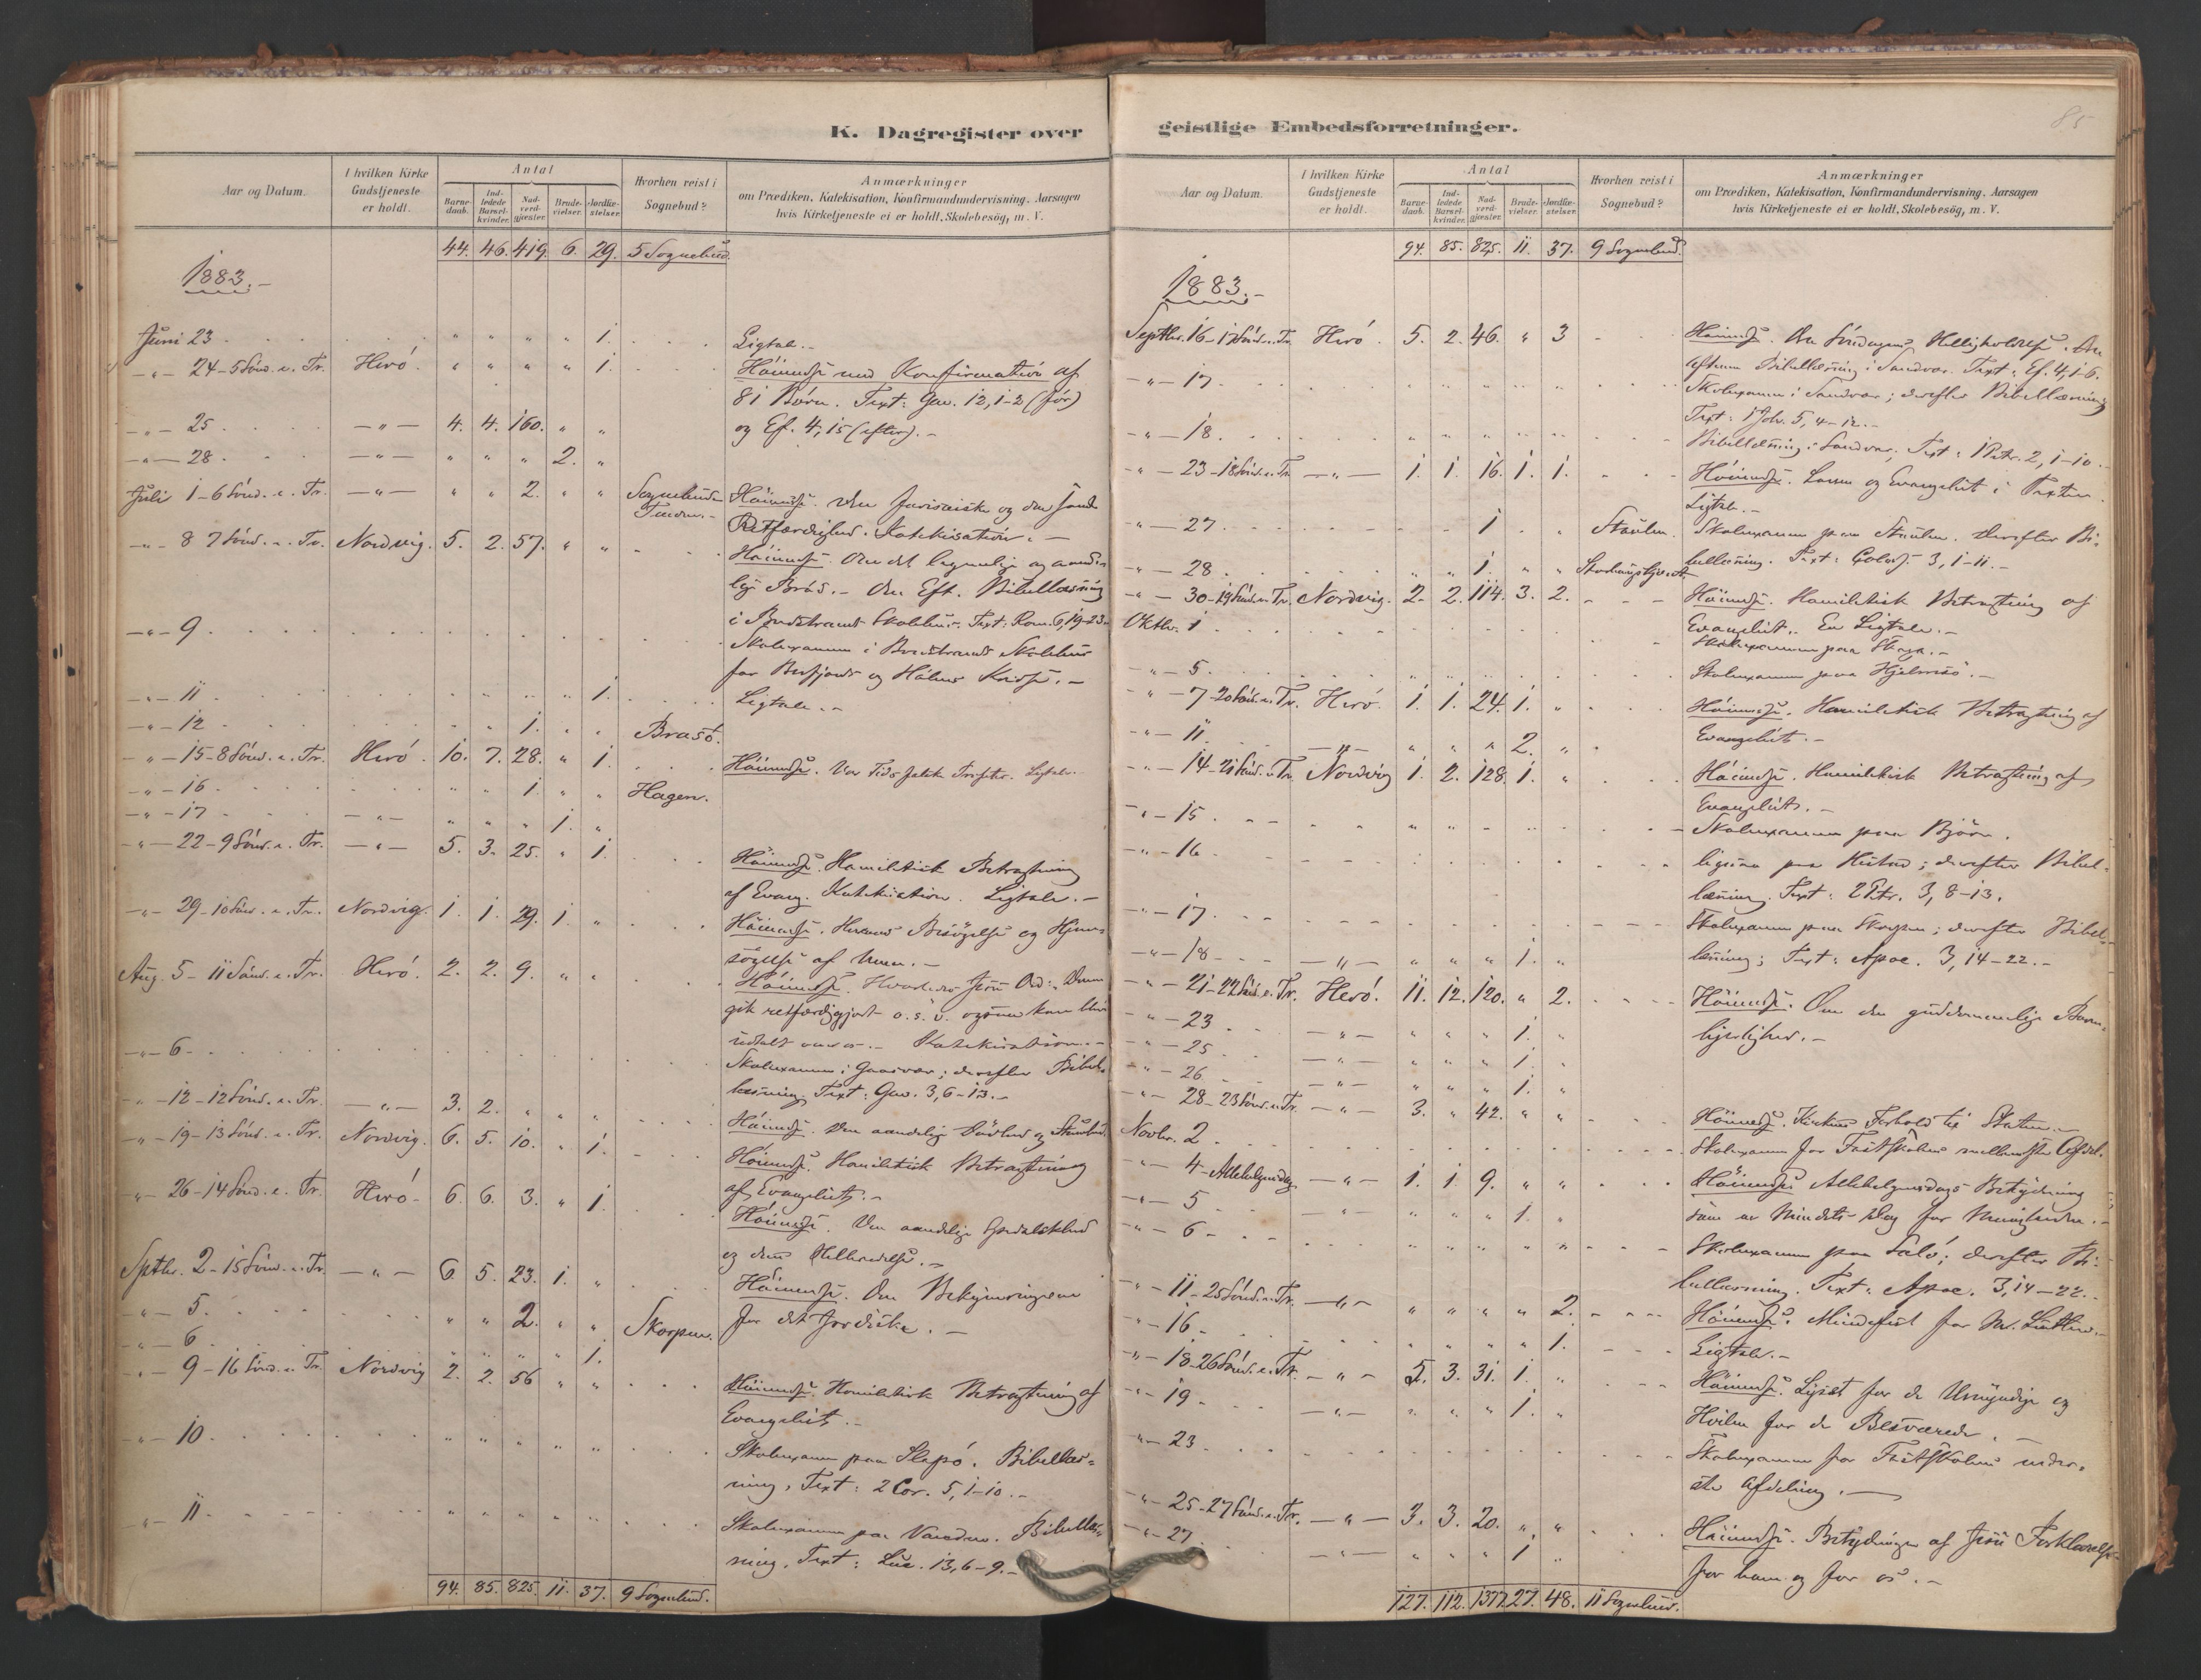 K. Dagregister over
Aar og Datum.
I hvilken Kirke Gudstjeneste er holdt.
Antal
Barne-daab.
Ind-ledede Barsel-kvinder.
Nad-verd-gjæster.
Brude-vielser.
Jordfæ-stelser.
Hvorhen reist i Sognebud?
Anmærkninger
om Prædiken, Katekisation, Konfirmandundervisning. Aarsagen
hvis Kirketjeneste ei er holdt, Skolebesög, m. V.
44. 46. 419. 6. 29. 5 Sognebud.
1883.-
Juni 23 " " " " 1. Ligtale.-
-"- 24-5 Sönd. e. Tr. Herö. " " " " 1. Höimesse med Konfirmation af
81 Börn. Text: Gav. 12,1-2 (för)
-"- 25 -"- 4. 4. 160. " " og Ef. 4,15 (efter).-
-"- 28 -"- " " " 2. "
Juli 1-6 Sönd. e. Tr. -"- " " 2. " " Sognebud Höimesse. Den farisæiske og den sande
Retfærdighed. Katekisation.-
-"- 8 7 Sönd. e. Tr. Nordvig. 5. 2. 57. " "
Höimesse. Om det legemlige og aande-
lige Bröd.- Om Eft. Bibellæsning
i Skolehus. Text: Rom. 6,19-23.
-"- 9 Skolexamen i Skolehus
for og Kredse.-
-"- 11 1. Ligtale.-
-"- 12 1. " " Brasö.
-"- 15-8 Sönd. e. Tr. Herö. 10. 7. 28. " 1. Höimesse. Vor Tids falske Profeter. Ligtale.
-"- 16 " " 1. " " Hagen.
-"- 17 -"- " " " 1. "
-"- 22-9 Sönd. e. Tr. -"- 5. 3. 25. " 1.
Höimesse. Homiletisk Betragtning
af Evang. Katekisation. Ligtale.-
-"- 29-10 Sönd. e. Tr. Nordvig. 1. 1. 29. 1. "
Höimesse. Herrens Besögelse og Hjem-
sögelse af
Aug. 5-11 Sönd. e. Tr. Herö. 2. 2. 9. " "
Höimesse. Hvorledes Jesu Ord: Denne
gik retfærdiggjort o.s.v. ogsaa kan blive
udtalt over os.- Katekisation.-
-"- 6 Skolexamen i Gaasvær; derefter Bibel-
læsning. Text: Gav. 3,6-13.-
-"- 12-12 Sönd. e. Tr. -"- 3. 2. " " "
Höimesse. Den aandelige Dövhed og Stumhed.
-"- 19-13 Sönd. e. Tr. Nordvig. 6. 5. 10. " 1.
Höimesse. Homiletisk Betragtning
af Evangeliet.-
-"- 26-14 Sönd. e. Tr. Herö. 6. 6. 3. " 1.
Höimesse. Den aandelige Spedalskhed
og dens Helbredelse.-
Septbr. 2-15 Sönd. e. Tr. -"- 6. 5. 23. 1. "
Höimesse. Om Bekymringerne
for det Jordiske.-
-"- 5. " " 2. " " Skorpen.
-"- 6 " " " " 1.
-"- 9-16 Sönd. e. Tr. Nordvig 2. 2. 56 " "
Höimesse. Homiletisk Betragtning af
Evangeliet.-
-"- 10
Skolexamen paa Slapö. Bibellæs-
ning, Text: 2 Cor. 5,1-10.-
-"- 11
Skolexamen paa Bibellæs-
ning, Text: Luc. 13,6-9.-
94. 85. 825. 11. 37. 9 Sognebud.
85
geistlige Embedsforretninger.
Aar og Datum.
I hvilken Kirke Gudstjeneste er holdt.
Antal
Barne-daab.
Ind-ledede Barsel-kvinder.
Nad-verd-gjæster.
Brude-vielser.
Jordfæ-stelser.
Hvorhen reist i Sognebud?
Anmærkninger
om Prædiken, Katekisation, Konfirmandundervisning. Aarsagen
hvis Kirketjeneste ei er holdt, Skolebesög, m. V.
94. 85. 825. 11. 37. 9 Sognebud.
1883.-
Septbr. 16-17 Sönd. e. Tr. Herö. 5. 2. 46. " 3 Höimesse. Om Söndagens Helligholdelse. Om
eftern Bibellæsning i Sandvær. Text: Ef. 4,1-6.
-"- 17 Skolexamen i Sandvær; derefter Bibellæsning
Text: 1 Joh. 5,4-12.-
-"- 18 Bibellæsning i Sandvær; Text: 1 Petr. 2,1-10.-
-"- 23-18 Sönd. e. Tr. -"- 1. 1. 16. 1. 1.
Höimesse. Loven og Evangeliet i Texten.
Ligtale.-
-"- 27 1 " Staulen. Skolexamen paa Staulen. Derefter Bi-
bellæsning. Text: Coloss. 3,1-11.-
-"- 28 1. " "
-"- 30-19 Sönd. e. Tr. Nordvig. 2. 2. 114. 3. 2. Höimesse. Homiletisk Betragtning af
Evangeliet. En Ligtale.-
Oktbr. 1 Skolexamen paa
-"- 5 Skolexamen paa Hjelmsö.-
-"- 7-20 Sönd. e. Tr. Herö. 1. 1. 24. 1. " Höimesse. Homiletisk Betragtning af
Evangeliet.-
-"- 11 -"- " " " 2. "
-"- 14-21 Sönd. e. Tr. Nordvig 1. 2. 128. 1. " Höimesse. Homiletisk Betragtning af
Evangeliet.-
-"- 15 Skolexamen paa Björn.
-"- 16 ligesaa paa derefter Bibel-
læsning. Text: 2 Petr. 3,8-13.
-"- 17 Skolexamen paa Skorpen; derefter Bibel-
læsning; Text: Apoc. 3,14-22.-
-"- 18 -"- " " " 1. "
-"- 21-22 Sönd. e. Tr. Herö. 11. 12. 120. " 2. Höimesse. Om den guddommelige Barm-
hjertighed.-
-"- 23 -"- " " " 1. "
-"- 25 -"- " " " 1. "
-"- 26 -"- " " " 1. "
-"- 28-23 Sönd. e. Tr. -"- 3. " 42. " " Höimesse. Kirkens Forhold til Staten.-
Novbr. 2 Skolexamen for Fastskolens mellemste Afdel.
-"- 4-Allehelgensdag -"- 1. 1. 9. " " Höimesse. Allehelgensdags Betydning
som en Mindets-Dag for Menigheden.-
-"- 5 -"- " " " 1. "
-"- 6 Skolexamen paa derefter Bi-
bellæsning. Text: Apoc. 3,14-22.-
-"- 11-25 Sönd. e. Tr. -"- " " " " 2. Höimesse. Mindefest for M. Luther.-
-"- 16 1. Ligtale.-
-"- 18-26 Sönd. e. Tr. -"- 5. 3. 31. 1. " Höimesse. Lyset for de Umyndige og
Hvilen for de Besværede.-
-"- 19 -"- " " " 1. "
-"- 23 Skolexamen for Fastskolens neder-
ste Afdeling.-
-"- 25-27 Sönd. e. Tr. -"- 3. 3. 20. " " Höimesse. Betydningen af Jesu Forklarelse
for ham og for os.-
-"- 27 -"- " " " 1 "
127. 112. 1377. 27. 48. 11 Sognebud.